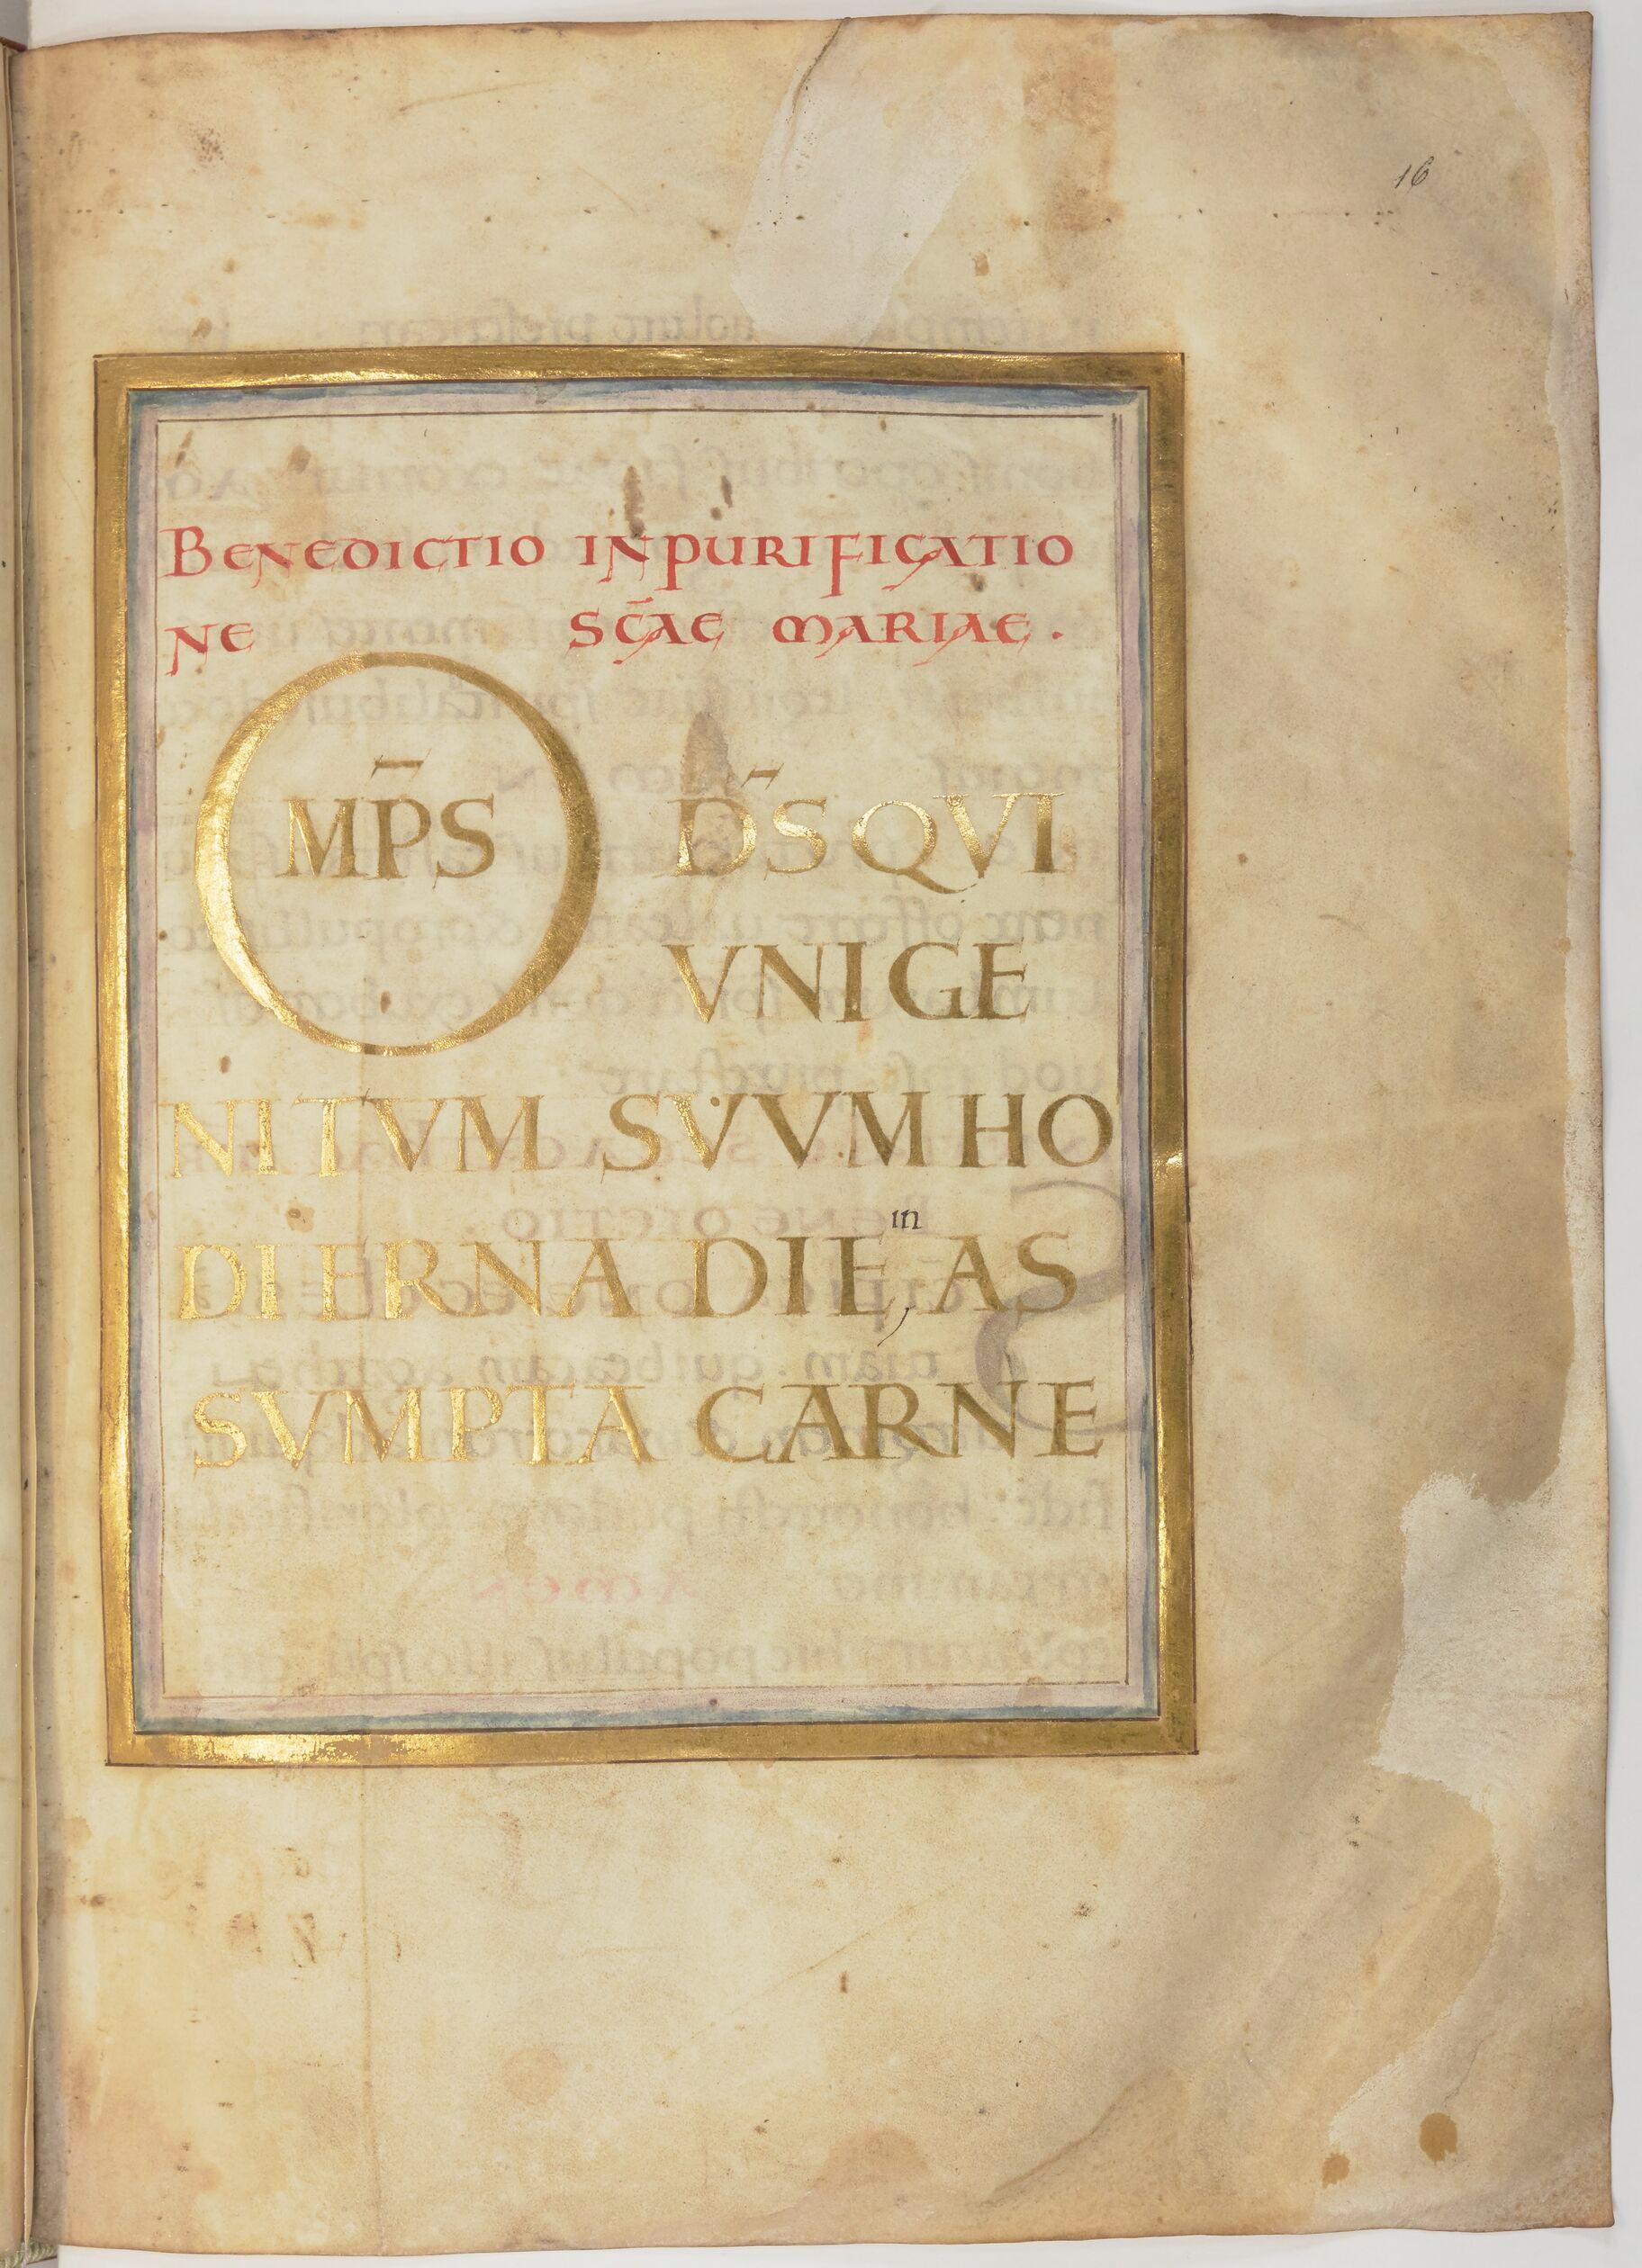 16
BENEDICTIO IN PURIFICATIO
NE SC̄AE MARIAE.
OMP̄S D̄S QVI
VNIGE
NITVM SVVM HO
DIERNA DIE, in AS
SVMPTA CARNE